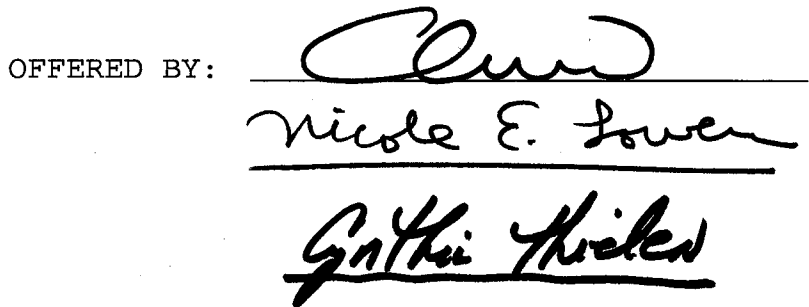 OFFERED BY:
Nicole E. Lowen
Cynthia Thielen